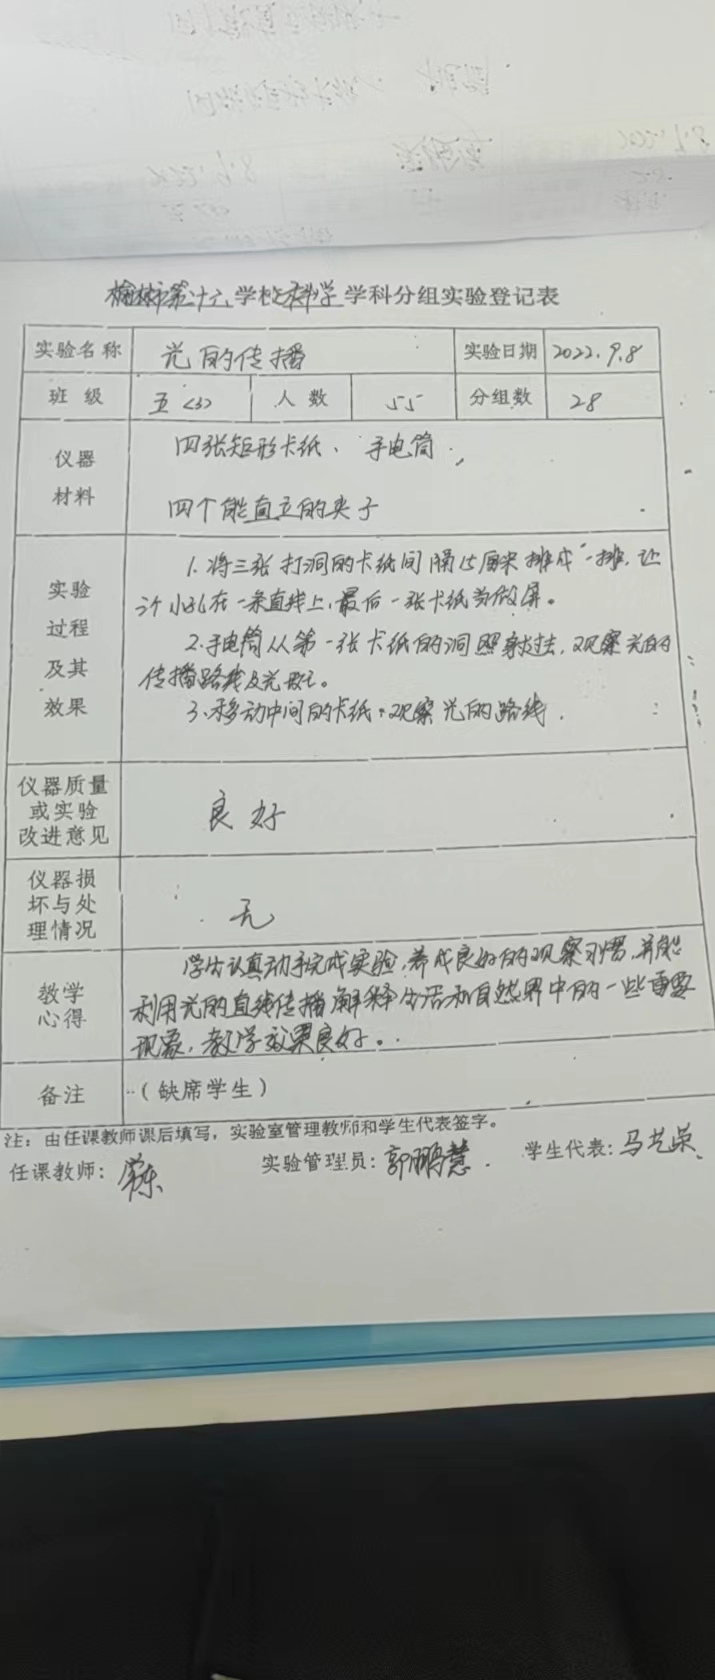 榆林市第十六学校科学学科分组实验登记表
实验名称 光的传播 实验日期 2022.9.8
班 级 五<3> 人 数 55 分组数 28
仪器 四张矩形卡纸、手电筒、
材料 四个能直立的夹子
实验 1.将三张打洞的卡纸间隔15厘米排成一排,让
过程 3个小孔在一条直线上,最后一张卡纸当做屏。
及其 2.手电筒从第一张卡纸的洞照射过去,观察光的
效果 传播路线及光斑。
3.移动中间的卡纸,观察光的路线.
仪器质量
或实验 良好
改进意见
仪器损
坏与处 无
理情况
学生认真动手完成实验,养成良好的观察习惯,并能
教学 利用光的直线传播解释生活和自然界中的一些重要
心得 现象,教学效果良好。
备注 (缺席学生)
注:由任课教师课后填写,实验室管理教师和学生代表签字。
任课教师: 实验管理员:郭鹏慧 学生代表:马艺